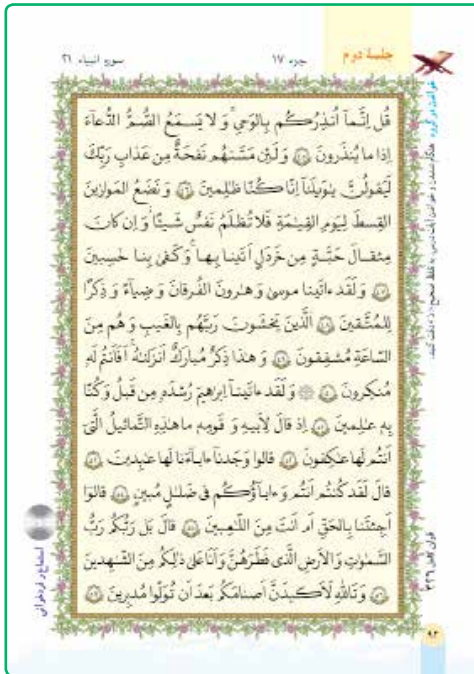 جلسهٔ دوم
جزء ۱۷
سورهٔ انبیاء ۲۱
قُل اِنَّمآ اُنذِرُكُم بِالوَحيِ ۚ وَ لا يَسمَعُ الصُّمُّ الدُّعآءَ
اِذا ما يُنذَرونَ ۴۵ وَ لَئِن مَسَّتهُم نَفحَةٌ مِن عَذابِ رَبِّكَ
لَيَقولُنَّ يٰوَيلَنآ اِنّا كُنّا ظٰلِمينَ ۴۶ وَ نَضَعُ المَوازينَ
القِسطَ لِيَومِ القِيٰمَةِ فَلا تُظلَمُ نَفسٌ شَيئًا ۖ وَ اِن كانَ
مِثقالَ حَبَّةٍ مِن خَردَلٍ اَتَينا بِها ۗ وَ كَفىٰ بِنا حٰسِبينَ
۴۷ وَ لَقَد ءاتَينا موسىٰ وَ هٰرونَ الفُرقانَ وَ ضِيآءً وَ ذِكرًا
لِلمُتَّقينَ ۴۸ اَلَّذينَ يَخشَونَ رَبَّهُم بِالغَيبِ وَ هُم مِنَ
السّاعَةِ مُشفِقونَ ۴۹ وَ هٰذا ذِكرٌ مُبارَكٌ اَنزَلنٰهُ ۚ اَفَاَنتُم لَهو
مُنكِرونَ ۵۰ ۞ وَ لَقَد ءاتَينآ اِبرٰهيمَ رُشدَهو مِن قَبلُ وَ كُنّا
بِه عٰلِمينَ ۵۱ اِذ قالَ لِاَبيهِ وَ قَومِه ما هٰذِهِ التَّماثيلُ الَّتى
اَنتُم لَها عٰكِفونَ ۵۲ قالوا وَجَدنآ ءابآءَنا لَها عٰبِدينَ ۵۳
قالَ لَقَد كُنتُم اَنتُم وَ ءابآؤُكُم فى ضَلٰلٍ مُبينٍ ۵۴ قالوٓا
اَجِئتَنا بِالحَقِّ اَم اَنتَ مِنَ اللّٰعِبينَ ۵۵ قالَ بَل رَبُّكُم رَبُّ
السَّمٰوٰتِ وَ الاَرضِ الَّذى فَطَرَهُنَّ وَ اَنَا عَلىٰ ذٰلِكُم مِنَ الشّٰهِدينَ
۵۶ وَ تَاللّٰهِ لَاَكيدَنَّ اَصنامَكُم بَعدَ اَن تُوَلّوا مُدبِرينَ ۵۷
استماع و فراخوانی
قرآن کامل ۳۲۶
۹۳